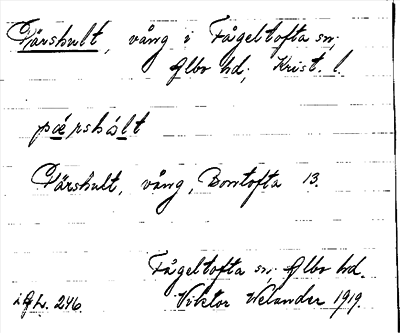 Pärshult, vång i Fågeltofta sn;
Albo hd; Krist. l.
pæ̀rshùlt
Pärshult, vång, Bontofta 13.
Fågeltofta sn, Albo hd.
Viktor Welander 1919.
246.